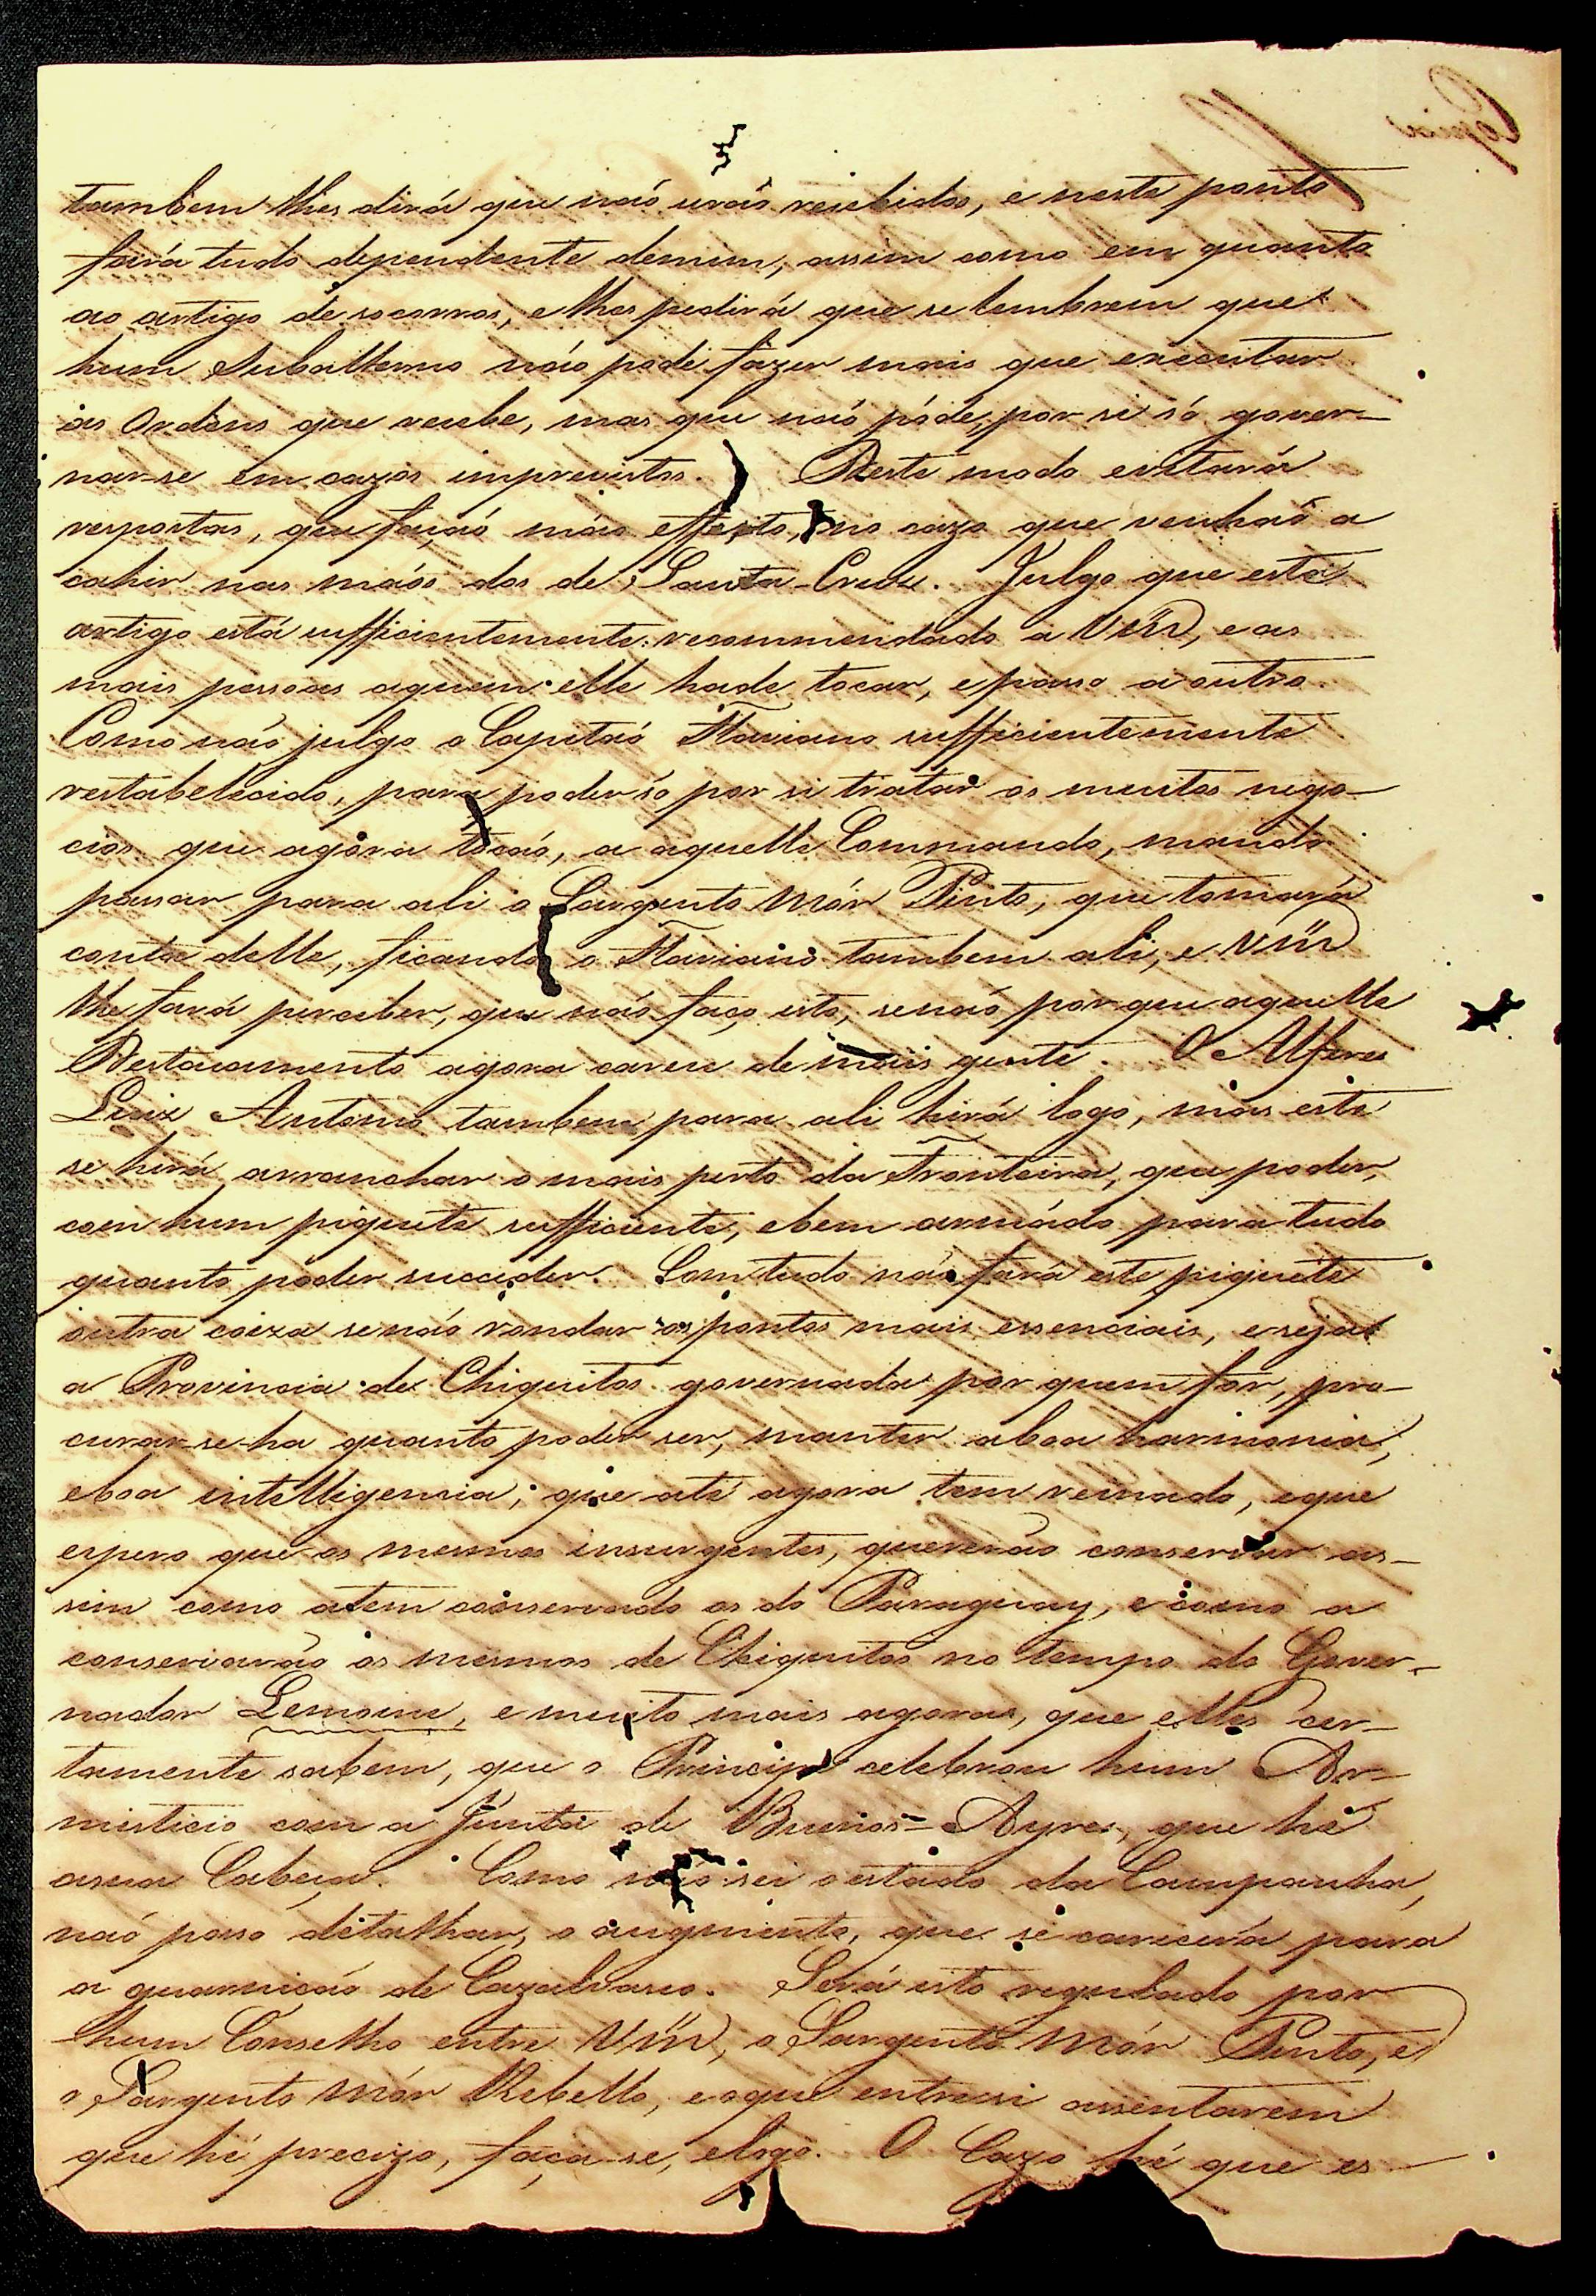 tambem lhes dirá que naõ seraõ recebidos, e neste ponto
fará tudo dependente demim, assim como em quanto
ao artigo de socorros, e lhes pedirá que se lembrem que
hum Subalterno náo póde fazer mais que executar
as Ordens que recebe, mas que naõ póde, por si só gover-
nar-se em cazos imprevistos. Deste modo evitará
respostas, que façaõ máo effeito, no cazo que venhaõ a
cahir nas maõs dos de Santa-Cruz. Julgo que este
artigo está sufficientemente recommendado a Vm̃ce, e as
mais pessoas aquem elle hade tocar, e passo a outro.
Como naõ julgo o Capitaõ Flaviano sufficientemente
restabelecido, para poder só por si tratar os muitos nego-
cios que agóra tocaõ, a aquelle Commando, mando
passar para ali o Sargento Mór Pinto, que tomará
conta delle, ficando o Flaviano tambem ali, e Vm̃ce
lhe fará perceber, que naõ faço isto, senaõ porque aquelle
Destacamento agora carece de mais gente. O Alferes
Luiz Antonio tambem para ali hirá logo, mas este
se hirá arranchar o mais perto da Fronteira, que poder,
com hum piquete sufficiente, ebem armádo para tudo
quanto poder succeder. Comtudo naõ fará este piquete
outra coiza senaõ rondar os pontos mais essenciais, e seja
a Provincia de Chiquitos governada por quem for, pro-
curar-se-ha quanto poder ser, manter aboa harmonia,
eboa intelligencia; que até agora tem reinado, eque
espero que os mesmos insurgentes, quereráo conservar as-
sim como atem conservado os do Paraguay, e como a
conservaráo os mesmos de Chiquitos no tempo do Gover-
nador Lemoine, e muito mais agora, que elles cer-
tamente sabem, que o Principe celebrou hum Ar-
misticio com a Junta de Buenos-Ayres, que hé
asua Cabeça. Como naõ sei o estado da Campanha,
naõ posso detalhar, o augmento, que se carecerá para
a guarniçaõ de Cazalvasco. Será isto regulado por
hum Conselho entre Vm̃ce, o Sargento Mór Pinto, e
o Sargento Mór Rebello, e oque entresi assentarem
que hé precizo, faça-se, elogo. O Cazo hé que es-